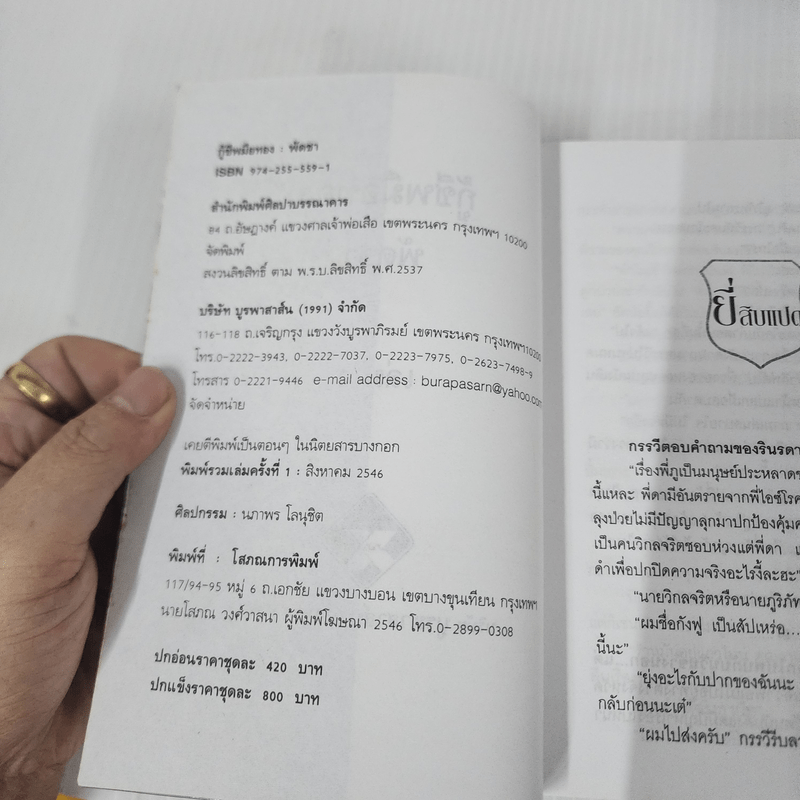 กู้ชีพมือทอง : พัดชา
ISBN 974-255-559-1
สำนักพิมพ์ศิลปาบรรณาคาร
ถ.อัษฎางค์ แขวงศาลเจ้าพ่อเสือ เขตพระนคร กรุงเทพฯ 10200
จัดพิมพ์
สงวนลิขสิทธิ์ ตาม พ.ร.บ.ลิขสิทธิ์ พ.ศ.2537
บริษัท บูรพาสาส์น (1991) จำกัด
116-118 ถ.เจริญกรุง แขวงวังบูรพาภิรมย์ เขตพระนคร กรุงเทพฯ10200
โทร.0-2222-3943, 0-2222-7037, 0-2223-7975, 0-2623-7498-9
โทรสาร 0-2221-9446 e-mail address : burapasarn@yahoo.com
จัดจำหน่าย
เคยตีพิมพ์เป็นตอนๆ ในนิตยสารบางกอก
พิมพ์รวมเล่มครั้งที่ 1 : สิงหาคม 2546
ศิลปกรรม : นภาพร โลนุชิต
พิมพ์ที่ : โสภณการพิมพ์
117/94-95 หมู่ 6 ถ.เอกชัย แขวงบางบอน เขตบางขุนเทียน กรุงเทพฯ
นายโสภณ วงศ์วาสนา ผู้พิมพ์โฆษณา 2546 โทร.0-2899-0308
ปกอ่อนราคาชุดละ 420 บาท
ปกแข็งราคาชุดละ 800 บาท
ยี่สิบแปด
กรรวีตอบคำถามของรินรดา
“เรื่องพี่ภูเป็นมนุษย์ประหลาด
นี้แหละ พี่ดามีอันตรายจากพี่ไอซ์โรค
ลุงป่วยไม่มีปัญญาลุกมาปกป้องคุ้ม
เป็นคนวิกลจริตชอบห่วงแต่พี่ดา
ดำเพื่อปกปิดความจริงอะไรงี้ละฮะ”
“นายวิกลจริตหรือนายภูริภัท
“ผมชื่อกังฟู เป็นสัปเหร่อ...
นี้นะ”
“ยุ่งอะไรกับปากของฉันนะ
กลับก่อนนะเต๋”
“ผมไปส่งครับ” กรรวีรีบ